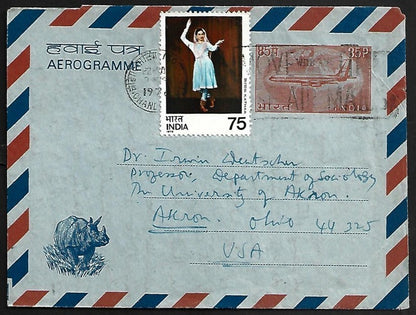 हवाई पत्र
AEROGRAMME
भारत
INDIA
75
85P
85P
भारत
INDIA
Dr. Irwin Deutscher
Professor, Department of Sociology
The University of Akron.
Akron. Ohio 44325
USA